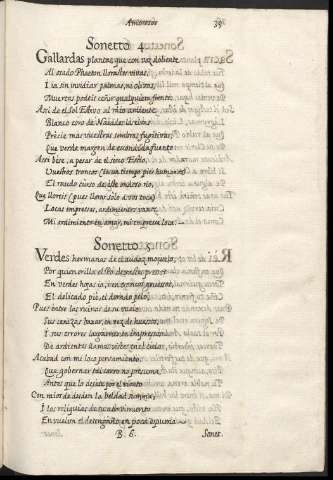 Amorosos 39
Sonetto 4
Gallardas plantas, que con voz doliente
Al osado Phaeton llorastes vivas,
I ia sin invidiar palmas, ni olivas,
Muertas podeis ceñir qualquiera frente:
Asi de el Sol Estivo al raio ardiente
Blanco coro de Naiades lascivas
Precie mas vuestras sombras fugitivas,
Que verde margen de escondida fuente:
Asi bese, a pesar de el seco Estio,
Vuestros troncos (ia un tiempo pies humanos)
El raudo curso de este undoso rio,
Que lloreis (pues llorar solo a vos toca)
Locas empresas, ardimientos vanos,
Mi ardimiento en amar, mi empresa loca.
Sonetto
Verdes hermanas de el audaz moçuelo,
Por quien orilla el Po dexastes presos
En verdes hojas ia, i en troncos gruesos
El delicado pie, el dorado pelo;
Pues entre las ruinas de su vuelo
Sus cenizas baxar, en vez de huesos,
I sus errores largamente impresos
De ardientes llamas vistes en el cielo;
Acabad con mi loco pensamiento,
Que gobernar tal carro no presuma,
Antes que lo desate por el viento
Con raios de desden la beldad summa,
I las reliquias de su atrevimiento
En vuelva el desengaño en poca espuma.
B. 6. Sonet